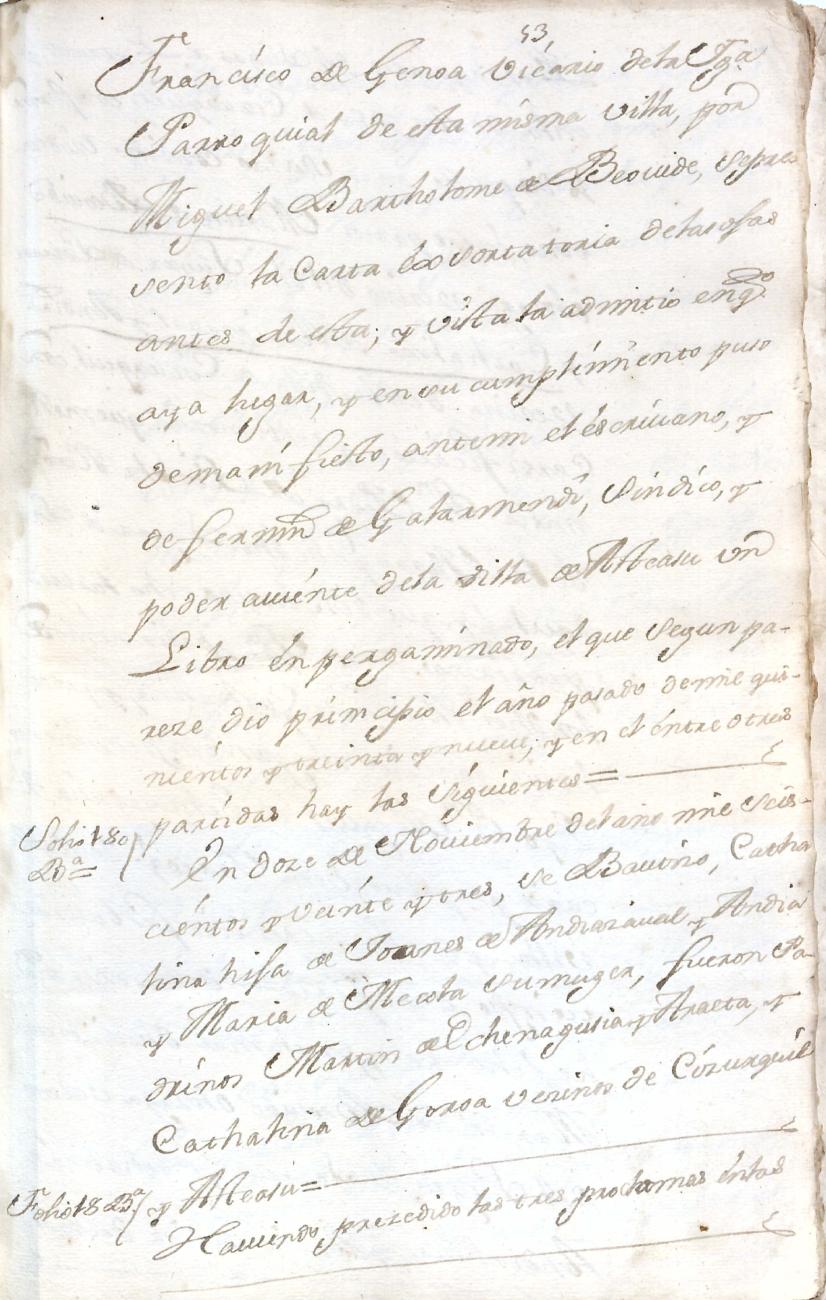 53
Francisco de Genoa Vicario dela Iga.
Parroquial de esta misma villa, por
Miguel Bartholome de Beovide, sepre
sento la Carta Exsortatoria delasosas
antes de esta; y vista la admitio enqto
aya lugar, y ensu cumplimiento puso
demanifiesto, antemi el escrivano, y
de fermin de Galarmendi, Sindico, y
poder aviente dela villa de Alteasu un
Libro enpergaminado, el que segun pa-
reze dio principio el año pasado demil qui-
nientos y treinta y nueve, y en el entre otras
partidas hay las siguientes=
Folio 180
Ba=
En doze de Noviembre del año mil seis-
cientos y veinte y tres, se Bautizo, Catha
lina hija de Joanes de Andiazaval y Andia
y Maria de Mecola sumuger, fueron Pa-
drinos Martin de Echenagusia y Araeta, y
Cathalina de Goroa vezinos de Cizurquil
y Alteasu=
Folio 18 Ba
Haviendo prezedido las tres proclamas enlas